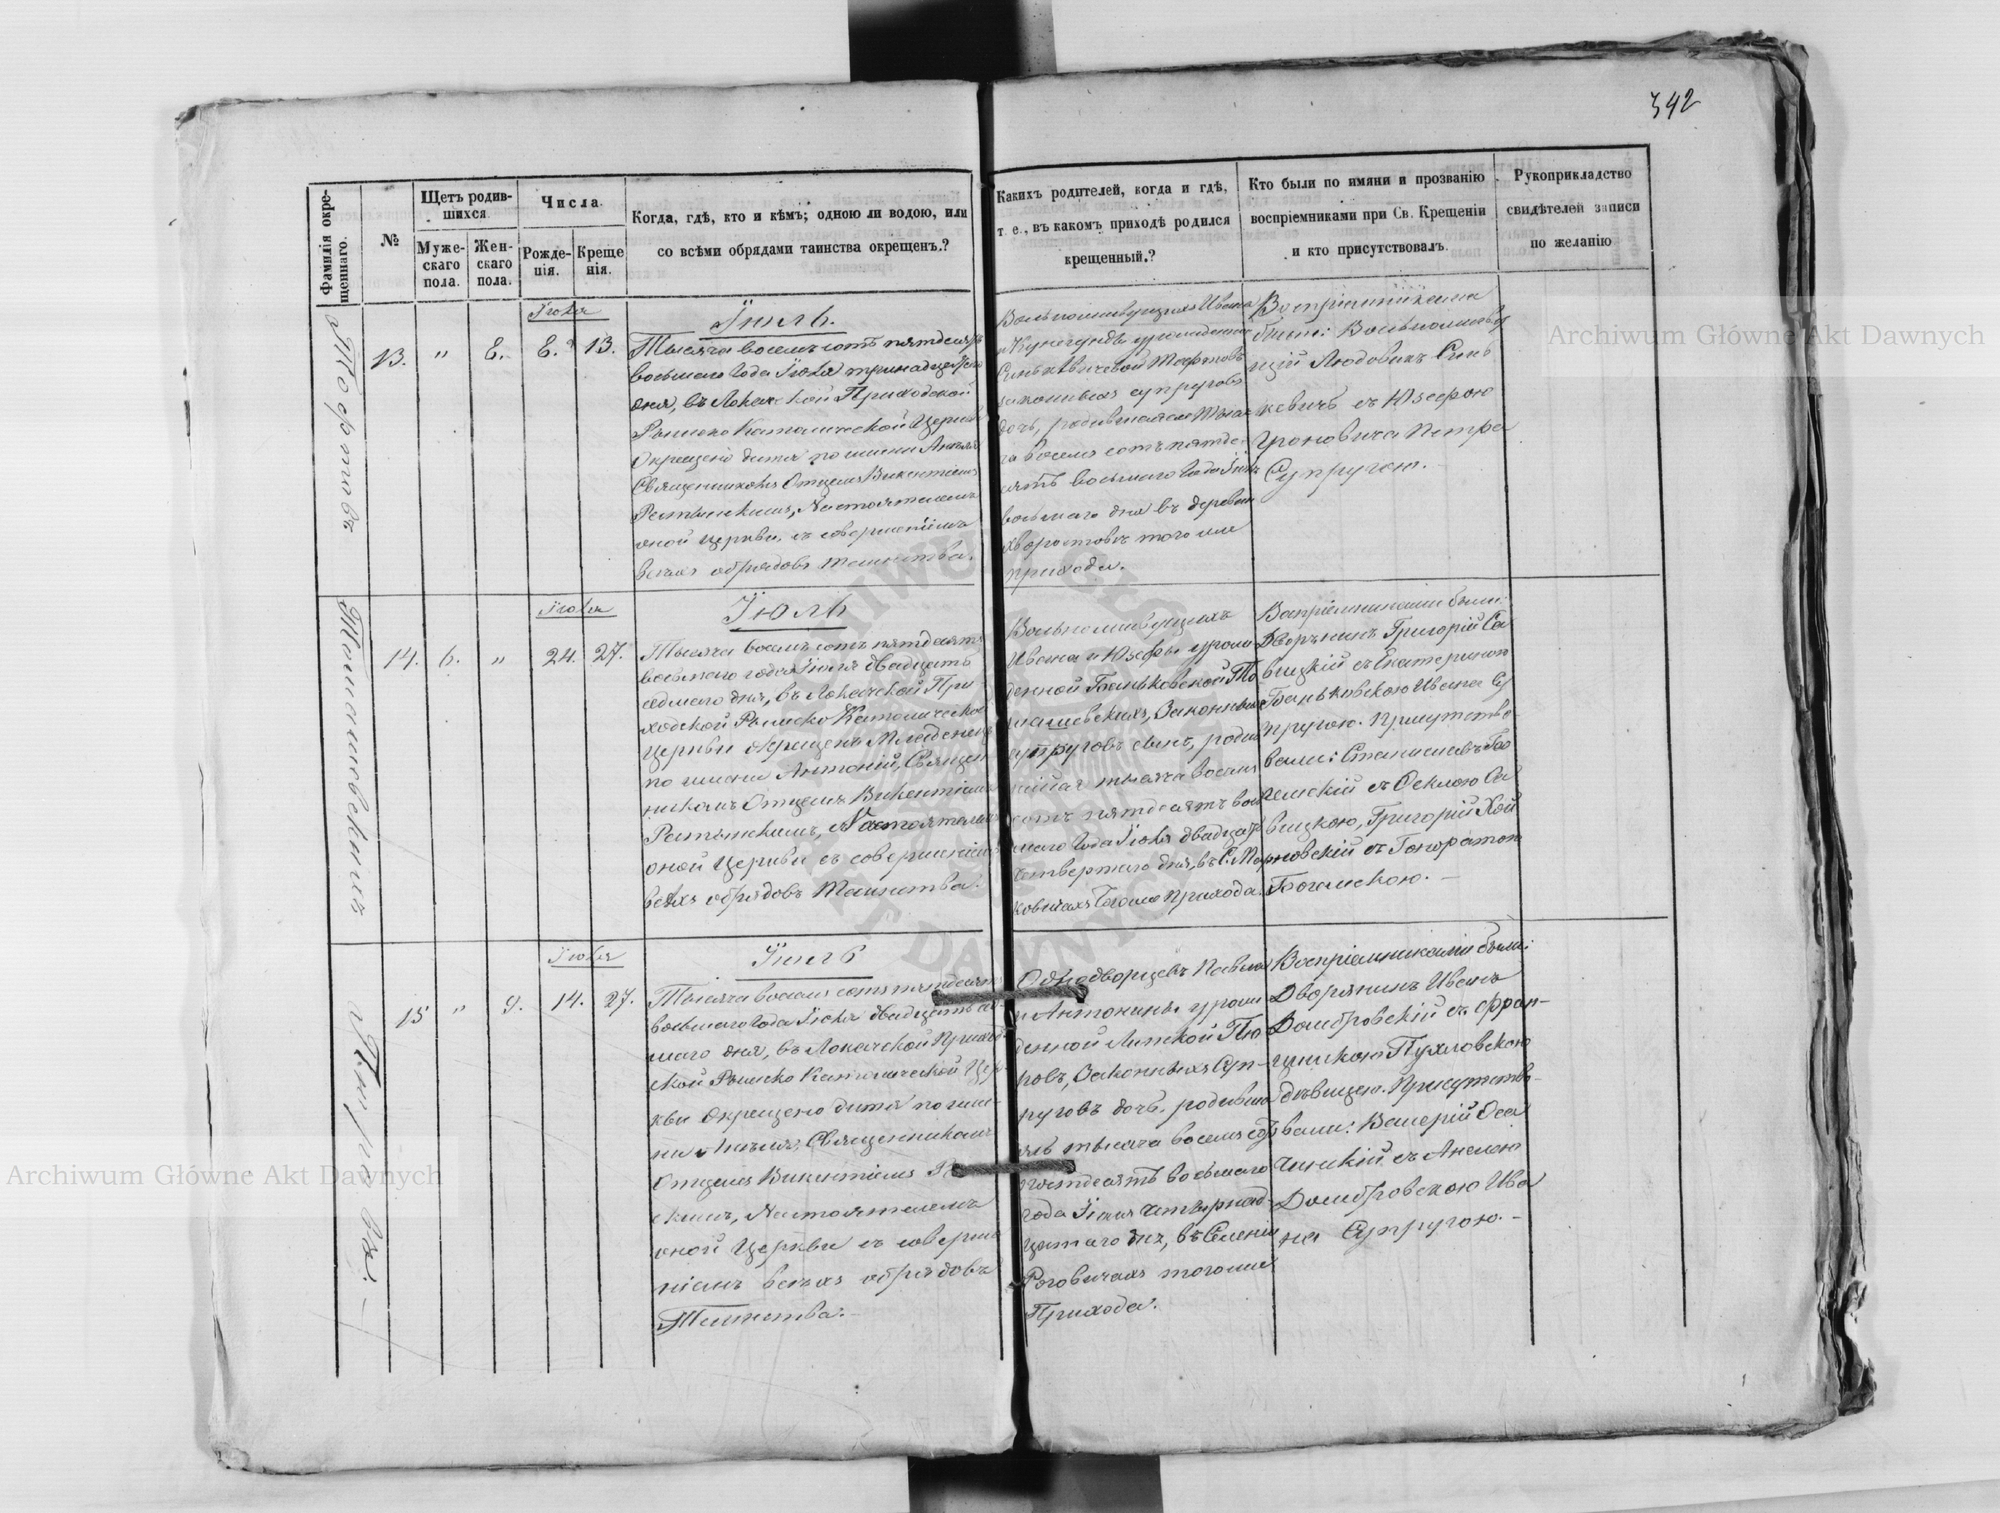 342
Фамилія окре-
щеннаго.
№
Щетъ родив-
шихся
Муже-
скаго
пола.
Жен-
скаго
пола.
Числа.
Рожде-
нія.
Креще
нія.
Когда, гдѣ, кто и кѣмъ; одною ли водою, или
со всѣми обрядами таинства окрещенъ.?
Какихъ родителей, когда и гдѣ,
т. е., въ какомъ приходѣ родился
крещенный.?
Кто были по имяни и прозванію
воспріемниками при Св. Крещеніи
и кто присутствовалъ.
Рукоприкладство
свидѣтелей записи
по желанію
13.
"
8.
Іюля
8.
13.
Іюль.
Тысяча восемьсотъ пятдесятъ
восьмаго Года Іюля тринадцатаго
дня, въ Локачской Приходской
Римско Католической Церкви
Окрещено дитя по имени
Священникомъ Отцемъ Викентіемъ
Настоятелемъ
оной Церкви, съ совершеніемъ
всехъ обрядовъ таинства.
Вольноживущихъ Ивана
законныхъ супруговъ
дочь, родившаяся Тыся-
ча восемь сотъ пятде-
сятъ восьмаго Года Іюля
восьмаго дня въ деревни
того же
прихода.
Воспріемниками
были: Вольноживу
щій Людовикъ Синь
кевичъ съ Юзефою
Петра
Супругою.
Томашевскій
14.
6.
"
Іюля
24.
27.
Іюль
Тысяча восемьсотъ пятдесятъ
восьмаго года Іюля двадцать
седмаго дня, въ Локачской При
ходской Римско Католической
Церкви окрещенъ Младенецъ
по имени Антоній, Священ
никомъ Отцемъ Викентіемъ
Настоятелемъ
оной Церкви съ совершеніемъ
всехъ обрядовъ Таинства.
Вольноживущихъ
Ивана и Юзефы урож
денной Баньковской То
машевскихъ, Законныхъ
супруговъ сынъ, родив
шійся тысяча восемь
сотъ пятдесятъ вось
маго Года Іюля двадцать
четвертаго дня, въ С. Мар
ковичахъ тогоже Прихода.
Воспріемниками были:
Дворянинъ Григорій Са
вицкій съ Екатериною
Баньковскою Ивана Су
пругою. Присутство
вали: Станиславъ Бо
гемскій съ Феклою Са
вицкою, Григорій Хой
новскій съ Гоноратою
Богемскою.
15
"
9.
Іюля
14.
27.
Іюль
Тысяча восемь сотъ пятдесятъ
восьмаго Года Іюля двадцать сед
маго дня, въ Локачской Приход
ской Римско Католической Цер
кви окрещено дитя по име-
ни Священникомъ
Отцемъ Викентіемъ
скимъ, Настоятелемъ
оной Церкви съ соверше
ніемъ всехъ обрядовъ
Таинства.
Однодворцевъ Павла
и Антонины урож
денной
Законныхъ Суп-
руговъ дочь, родивша
яся тысяча восемь сотъ
пятдесятъ восьмаго
года Іюля четырнад-
цатаго дня, въ Селеніи
Роговичахъ тогоже
Прихода.
Воспріемниками были:
Дворянинъ Иванъ
Домбровскій съ Фран-
цишкою Пухловскою
дѣвицею. Присутство-
вали: Валерій Оса
чинскій съ Анелею
Домбровскою Ива
на Супругою.
Archiwum Główne Akt Dawnych
Archiwum Główne Akt Dawnych